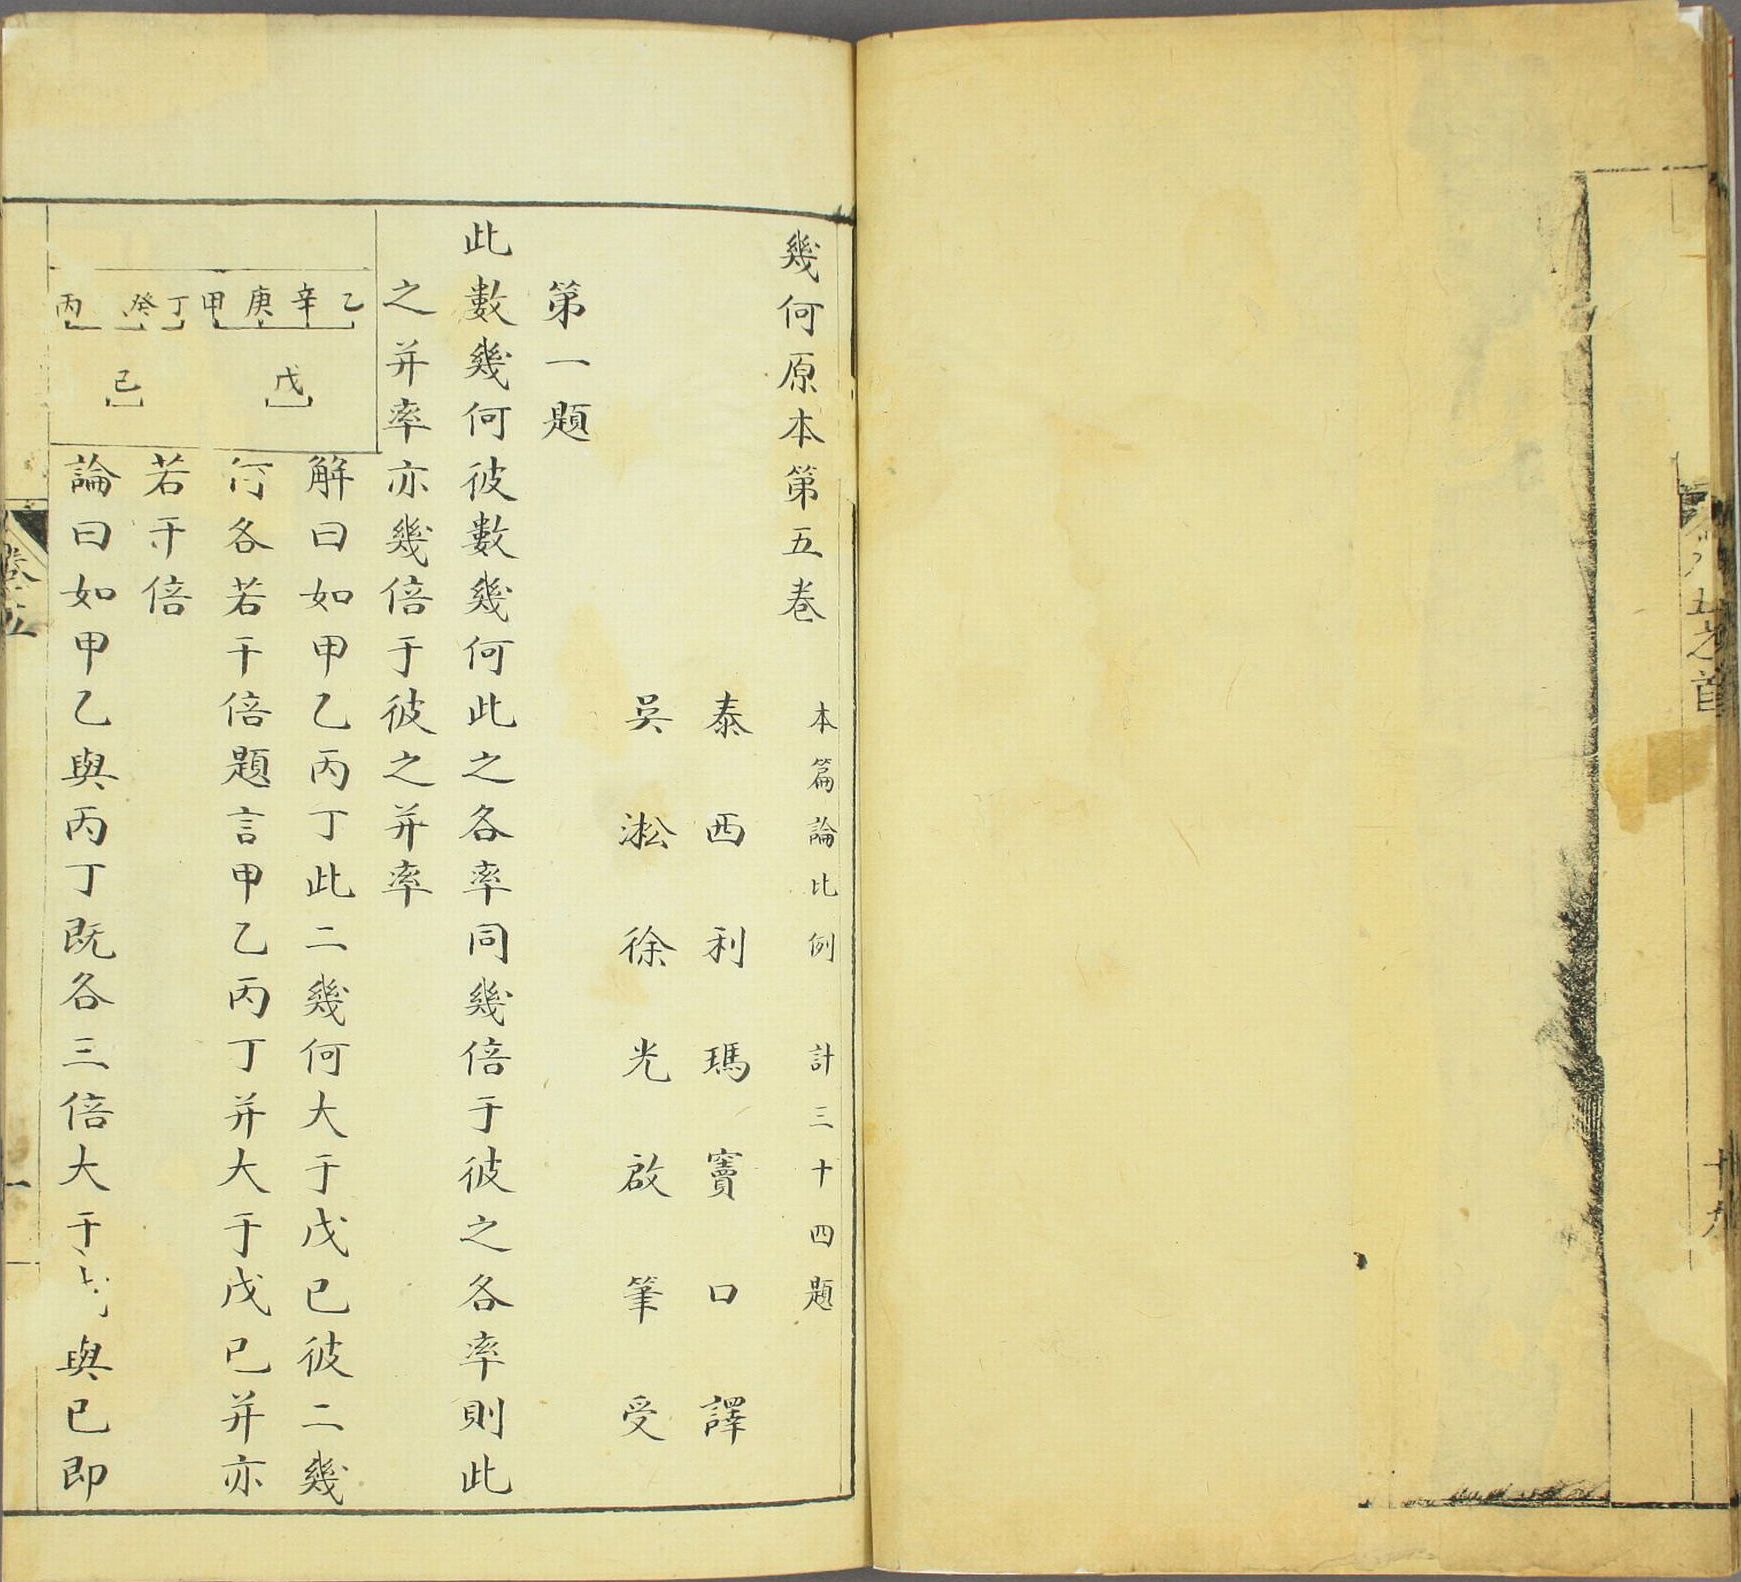 幾何原本第五卷 本篇論比例 計三十四題
泰西利瑪竇口譯
吳淞徐光啟筆受
第一題
此數幾何彼數幾何此之各率同幾倍于彼之各率則此
之并率亦幾倍于彼之并率
解曰如甲乙丙丁此二幾何大于戊己彼二幾
何各若干倍題言甲乙丙丁并大于戊己并亦
若干倍
乙辛庚甲丁癸丙
戊己
論曰如甲乙與丙丁既各三倍大于與己即
卷五
一
五之首
十九